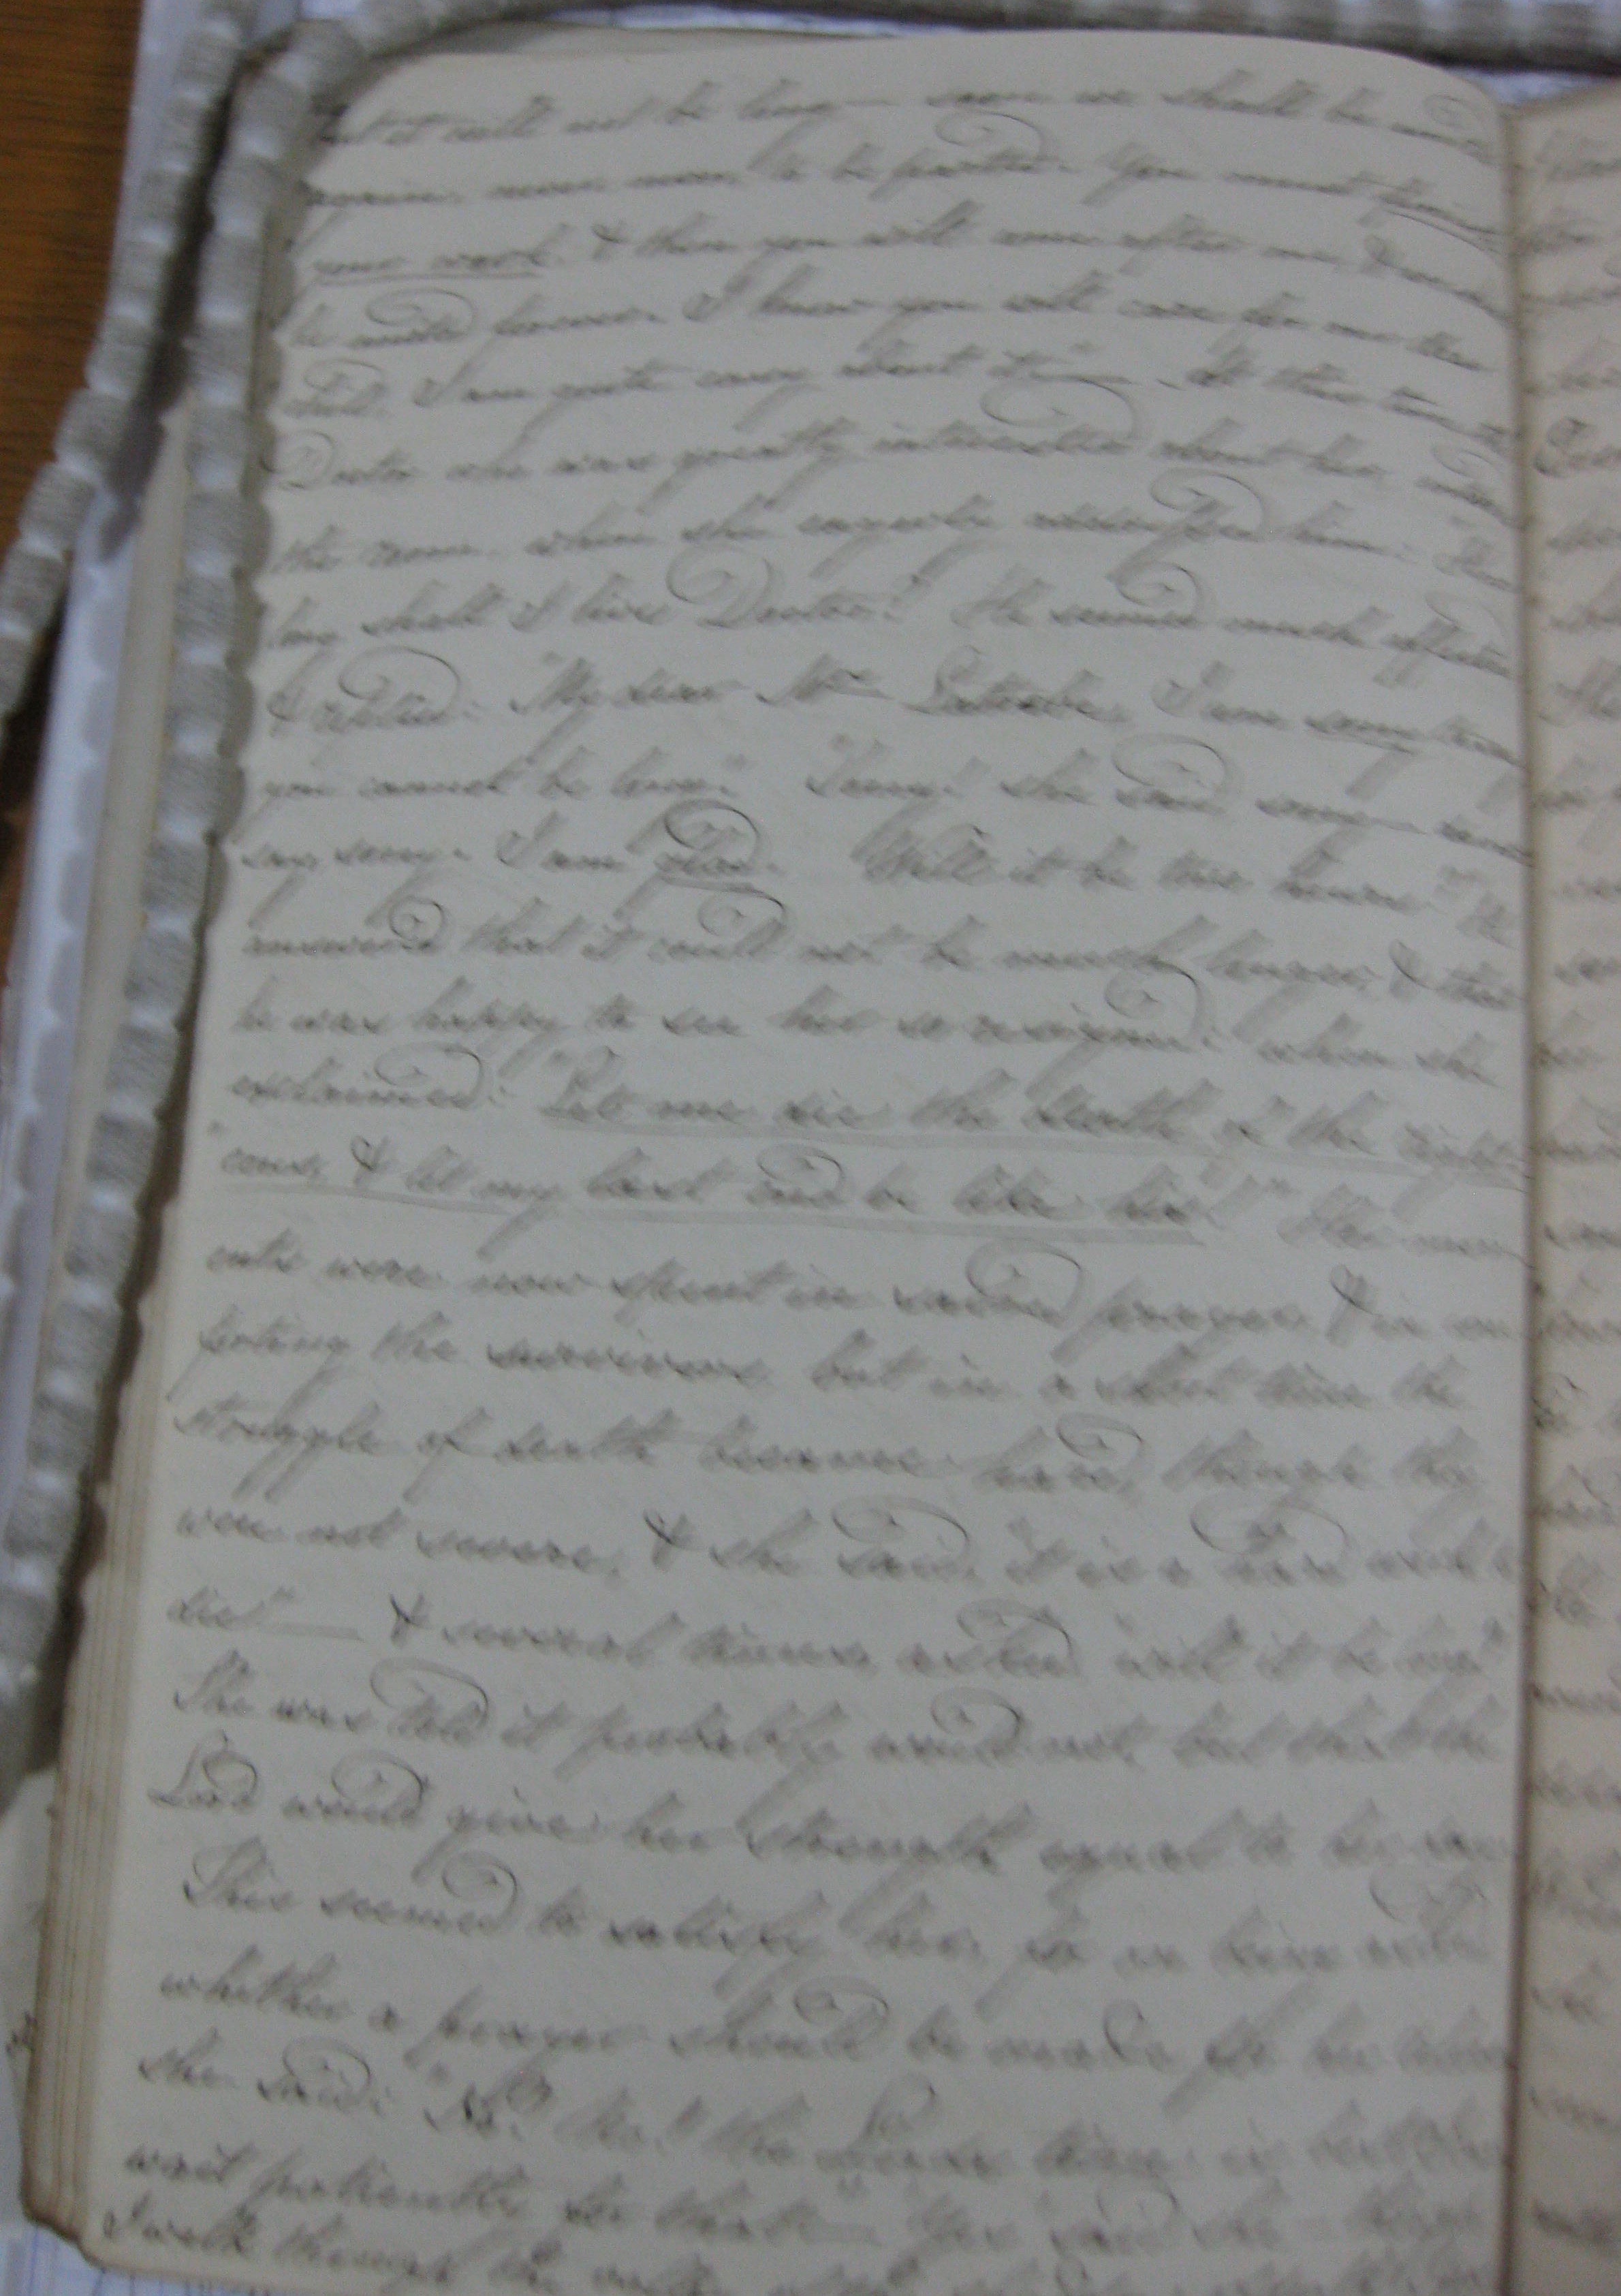 but it will not be long — soon we shall be united
again, never more to be parted. You must finish
your work & then you will come after me, & we shall
be united forever. I know you will care for our dear
child. I am quite easy about it" — At this time the
Doctor who was greatly interested about her, entered
the room, when she eagerly addressed him: "How
long shall I live Doctor?" He seemed much affected
& replied: "My dear Mrs Latrobe, I am sorry
you cannot be long." "Sorry! she said sorry — never
say sorry. I am glad. Will it be two hours?" He
answered that it could not be much longer, & that
he was happy to see her so resigned: when she
exclaimed: "Let me die the death of the right-
"eous, & let my last end be like his!" Her mom-
ents were now spent in sacred prayer, & in com-
forting the survivors, but in a short time the
struggle of death became hard, though they
were not severe, & she said, "it is a hard work to
die" — & several times asked "will it be long?"
She was told it probably would not, but that the
Lord would give her strength equal to her
This seemed to satisfy her, for on being asked
whether a prayer should be made for her
she said: "No! No! the Lords time is best
wait patiently for that — Yes said she — though
I walk through the valley